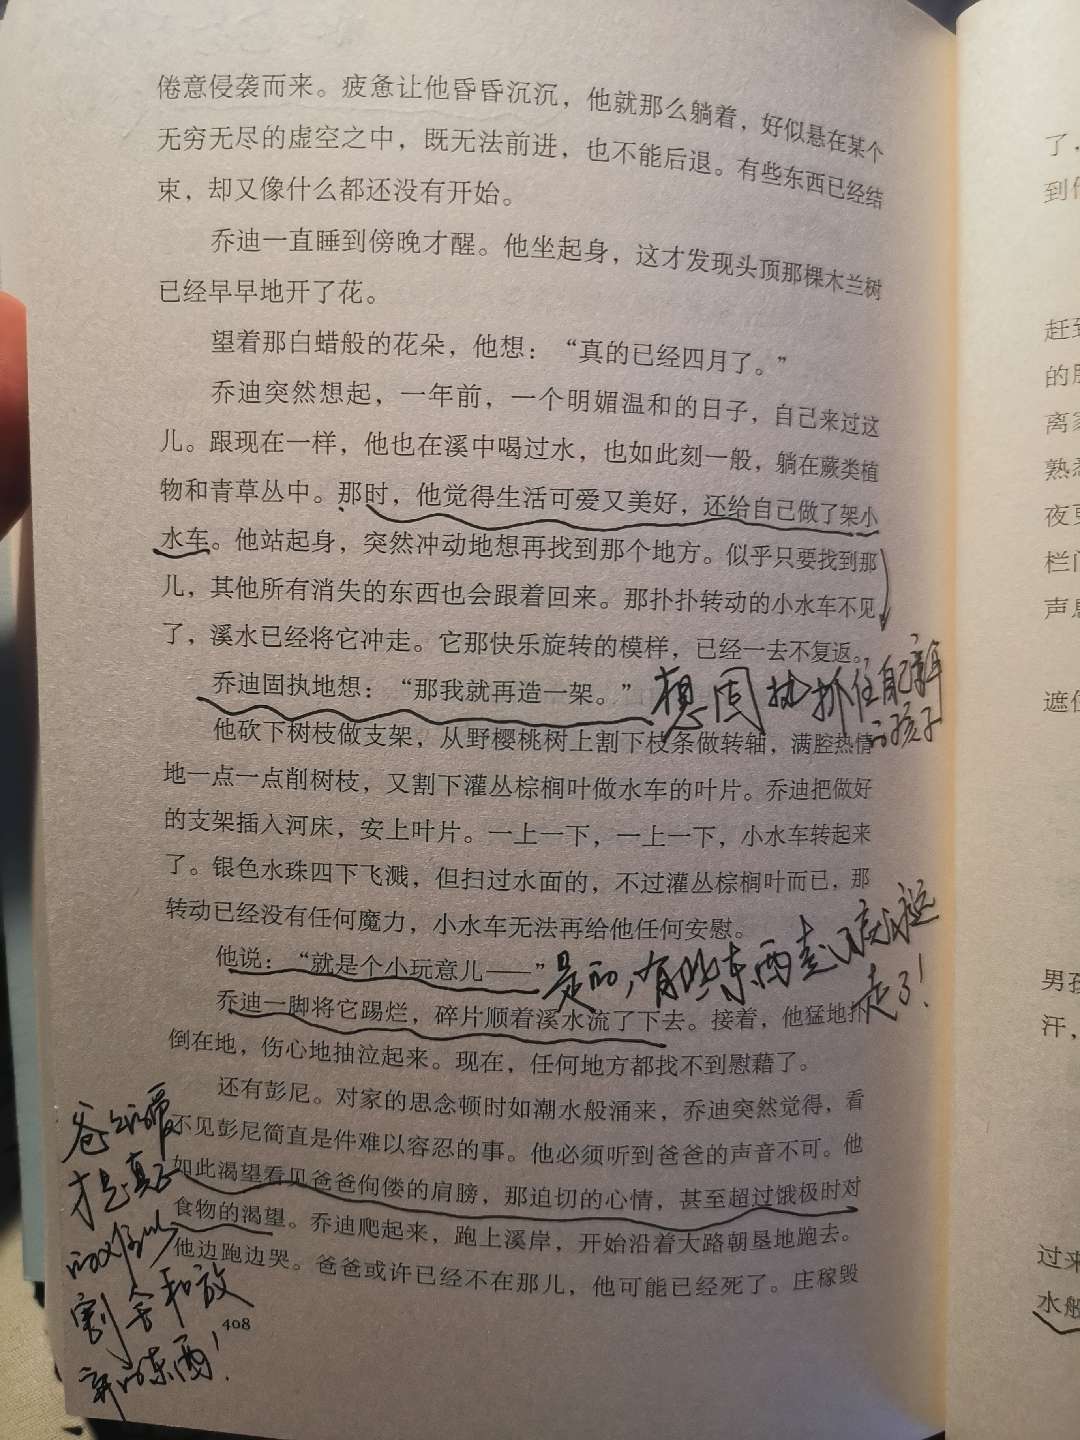 倦意侵袭而来。疲惫让他昏昏沉沉，他就那么躺着，好似悬在某个
无穷无尽的虚空之中，既无法前进，也不能后退。有些东西已经结
束，却又像什么都还没有开始。
乔迪一直睡到傍晚才醒。他坐起身，这才发现头顶那棵木兰树
已经早早地开了花。
望着那白蜡般的花朵，他想：“真的已经四月了。”
乔迪突然想起，一年前，一个明媚温和的日子，自己来过这
儿。跟现在一样，他也在溪中喝过水，也如此刻一般，躺在蕨类植
物和青草丛中。那时，他觉得生活可爱又美好，还给自己做了架小
水车。他站起身，突然冲动地想再找到那个地方。似乎只要找到那
儿，其他所有消失的东西也会跟着回来。那扑扑转动的小水车不见
了，溪水已经将它冲走。它那快乐旋转的模样，已经一去不复返。
乔迪固执地想：“那我就再造一架。”
想固执抓住自己童年
的孩子
他砍下树枝做支架，从野樱桃树上割下枝条做转轴，满腔热情
地一点一点削树枝，又割下灌丛棕榈叶做水车的叶片。乔迪把做好
的支架插入河床，安上叶片。一上一下，一上一下，小水车转起来
了。银色水珠四下飞溅，但扫过水面的，不过灌丛棕榈叶而已，那
转动已经没有任何魔力，小水车无法再给他任何安慰。
他说：“就是个小玩意儿——”
是的，有些东西走
走了！
乔迪一脚将它踢烂，碎片顺着溪水流了下去。接着，他猛地扑
倒在地，伤心地抽泣起来。现在，任何地方都找不到慰藉了。
还有彭尼。对家的思念顿时如潮水般涌来，乔迪突然觉得，看
不见彭尼简直是件难以容忍的事。他必须听到爸爸的声音不可。他
如此渴望看见爸爸佝偻的肩膀，那迫切的心情，甚至超过饿极时对
食物的渴望。乔迪爬起来，跑上溪岸，开始沿着大路朝垦地跑去。
他边跑边哭。爸爸或许已经不在那儿，他可能已经死了。庄稼毁
爸爸的爱
才是真正
的难以
割舍和放
弃的东西！
408
了，
到
赶到
的
离家
熟悉
夜
栏
声息
遮住
男孩
汗，
过来
水般